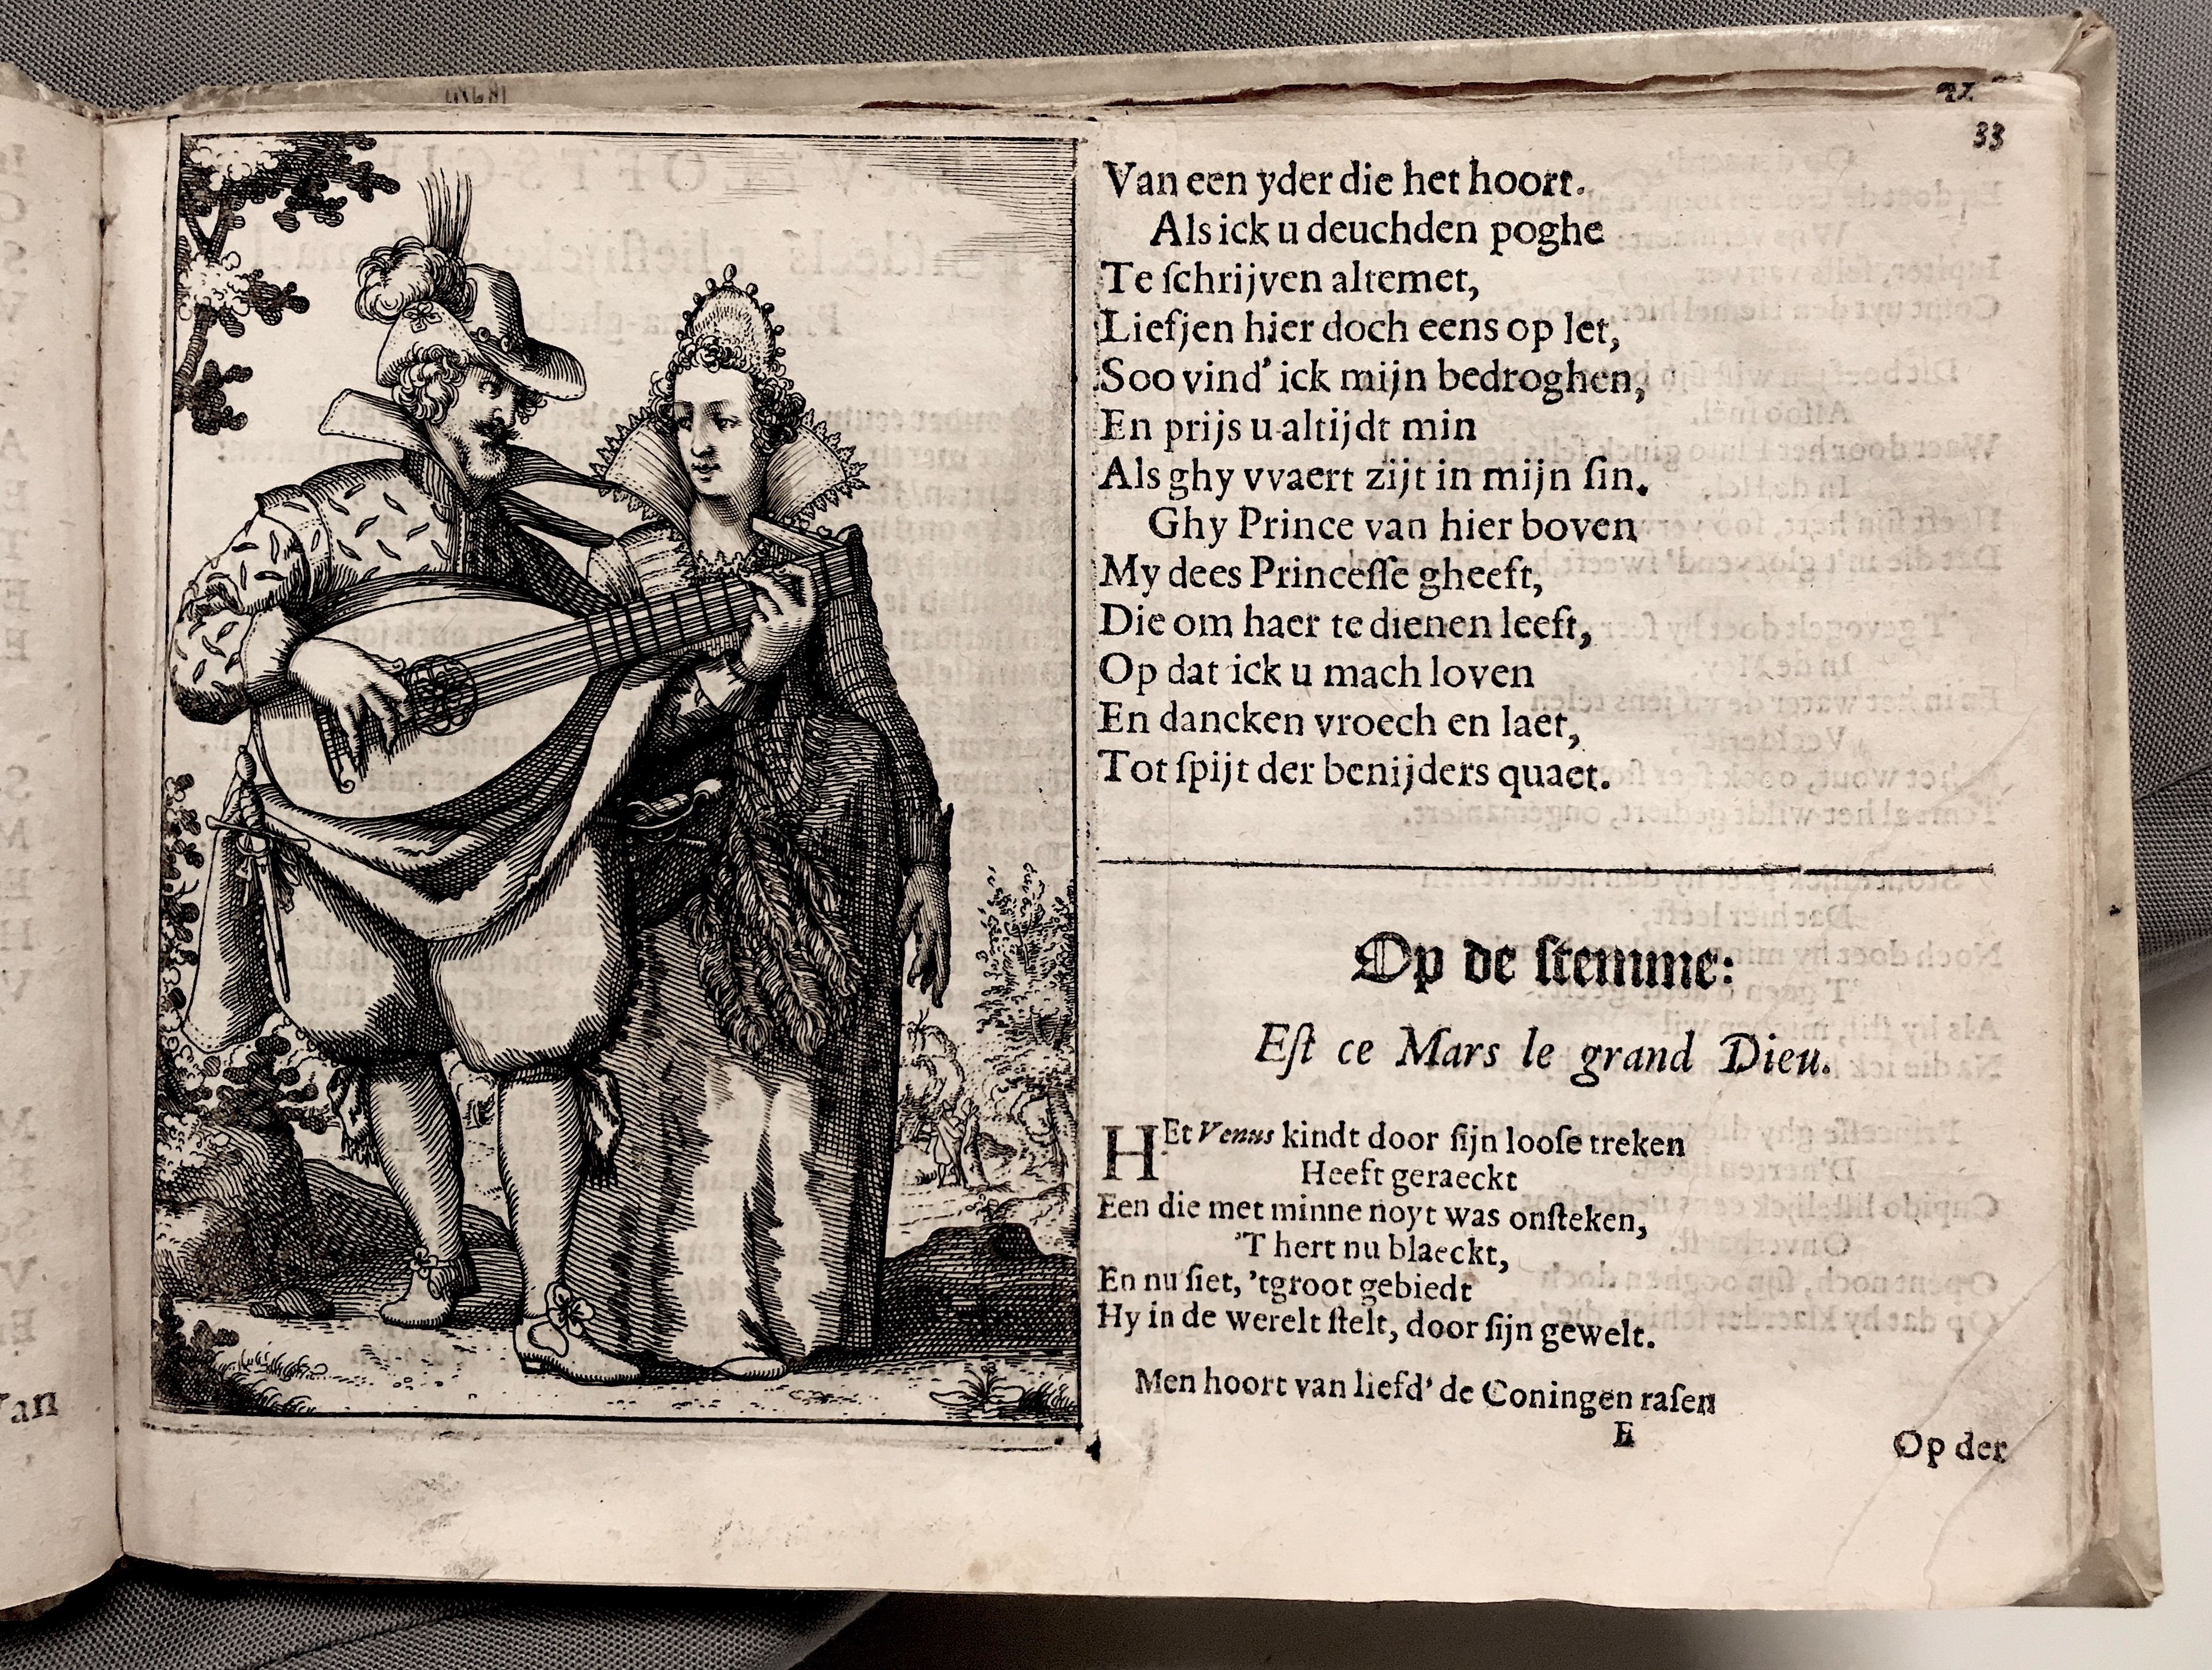 33
Van een yder die het hoort.
Als ick u deuchden poghe
Te ſchrijven altemet,
Liefjen hier doch eens op let,
Soo vind' ick mijn bedroghen,
En prijs u altijdt min
Als ghy vvaert zijt in mijn ſin.
Ghy Prince van hier boven
My dees Princeſſe gheeft,
Die om haer te dienen leeft,
Op dat ick u mach loven
En dancken vroech en laet,
Tot ſpijt der benijders quaet.
Op de ſtemme:
Eſt ce Mars le grand Dieu.
HEt Venus kindt door ſijn looſe treken
Heeft geraeckt
Een die met minne noyt was onſteken,
'T hert nu blaeckt,
En nu ſiet, 'tgroot gebiedt
Hy in de werelt ſtelt, door ſijn gewelt.
Men hoort van liefd' de Coningen raſen
E
Op der